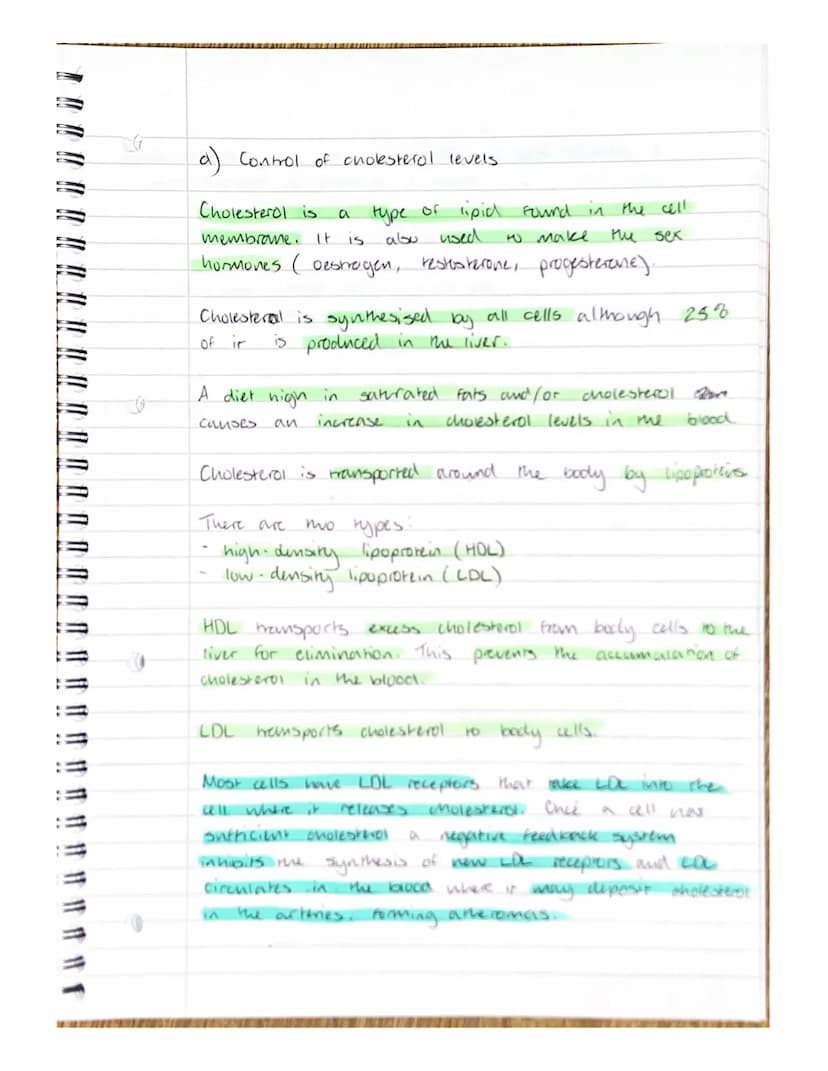 a) Control of cholesterol levels
Cholesterol is a type of lipid found in the cell
membrane. It is also used to make the sex
hormones ( oestrogen, testosterone, progesterone).
Cholesterol is synthesised by all cells although 25%
of it is produced in the liver.
A diet high in saturated fats and/or cholesterol
causes an increase in cholesterol levels in the blood
Cholesterol is transported around the body by lipoproteins
There are two types:
- high-density lipoprotein (HDL)
- low-density lipoprotein (LDL)
HDL transports excess cholesterol from body cells to the
liver for elimination. This prevents the accumulation of
cholesterol in the blood.
LDL transports cholesterol to body cells.
Most cells have LDL receptors that take LDL into the
cell where it releases cholesterol. Once a cell has
sufficient cholesterol a negative feedback system
inhibits the synthesis of new LDL receptors and LDL
circulates in the blood where it may deposit cholesterol
in the arteries. forming atheromas.